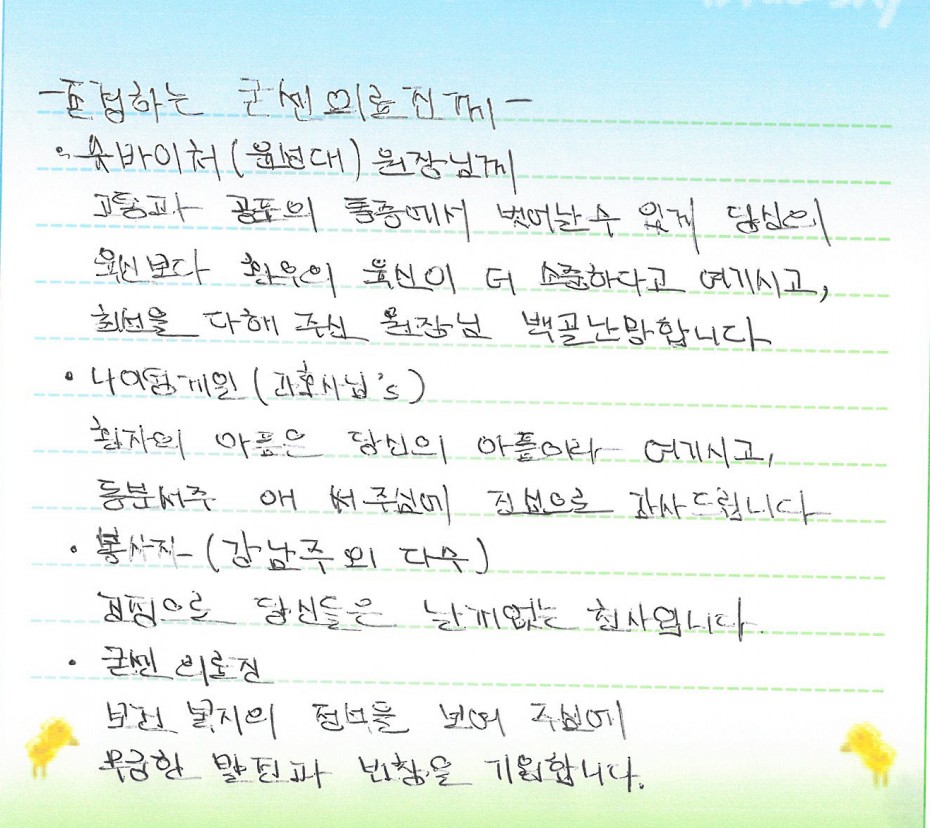 -존경하는 굳센의료진께-
• 슛바이처(윤현대) 원장님께
고통과 공포의 통증에서 벗어날수 있게 당신의
육신보다 환우의 육신이 더 소중하다고 여기시고,
최선을 다해 주신 원장님 백골난망합니다
• 나이팅게일(간호사님's)
환자의 아픔은 당신의 아픔이라 여기시고,
동분서주 애 써주심에 진심으로 감사드립니다
• 봉사자-(강남주 외 다수)
당신들은 날개없는 천사입니다.
• 굳센 의료진
보건 복지의 정석을 보여 주심에
무궁한 발전과 번창을 기원합니다.